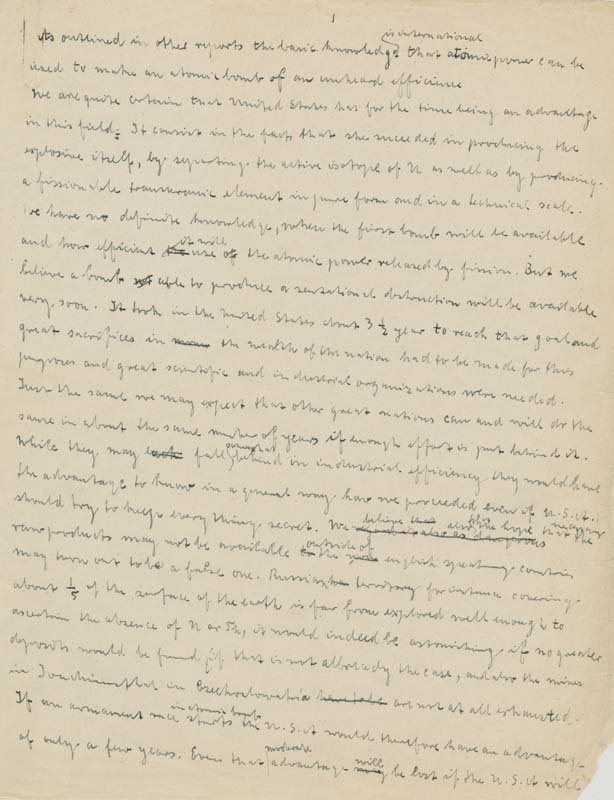 1
is international
As outlined in other reports the basic knowledge that atomic power can be
used to make an atomic bomb of an unheard efficience
We are quite certain that United States has for the time being an advantage
in this field: It consist in the facts that she succeeded in producing the
explosive itself, by separating the active isotope of U as well as by producing
a fissionable transuranic element in pure form and in a technical scale.
We have no definite knowledge, when the first bomb will be available
and how efficient it will use of the atomic power released by fission. But we
believe a bomb able to produce a sensational distruction will be available
very soon. It took in the United States about 3 1/2 year to reach that goal and
great sacrifices in the wealth of the nation had to be made for this
purposes and great scientific and industrial organizations were needed.
Just the same we may expect that other great nations can and will do the
same in about the same number of years if enough effort is put behind it.
While they may fall somewhat behind in industrial efficiency they would have
the advantage to know in a general way how we proceeded even if U.S. it.
should try to help every thing secret. We believe also the hope that the necessary
raw products may not be available outside of english speaking countries
may turn out to be a false one. Russian territory for instance covering
about 1/5 of the surface of the earth is far from explored well enough to
ascertain the absence of U or Th, it would indeed be astonishing if no greater
deposits would be found if that is not allready the case, and also the mines
in Joachimsthal in Czechoslovakia are not at all exhausted.
If an armament race in atomic bomb starts the U.S. it would therefore have an advantage
of only a few years. Even that moderate advantage will be lost if the U.S. it will